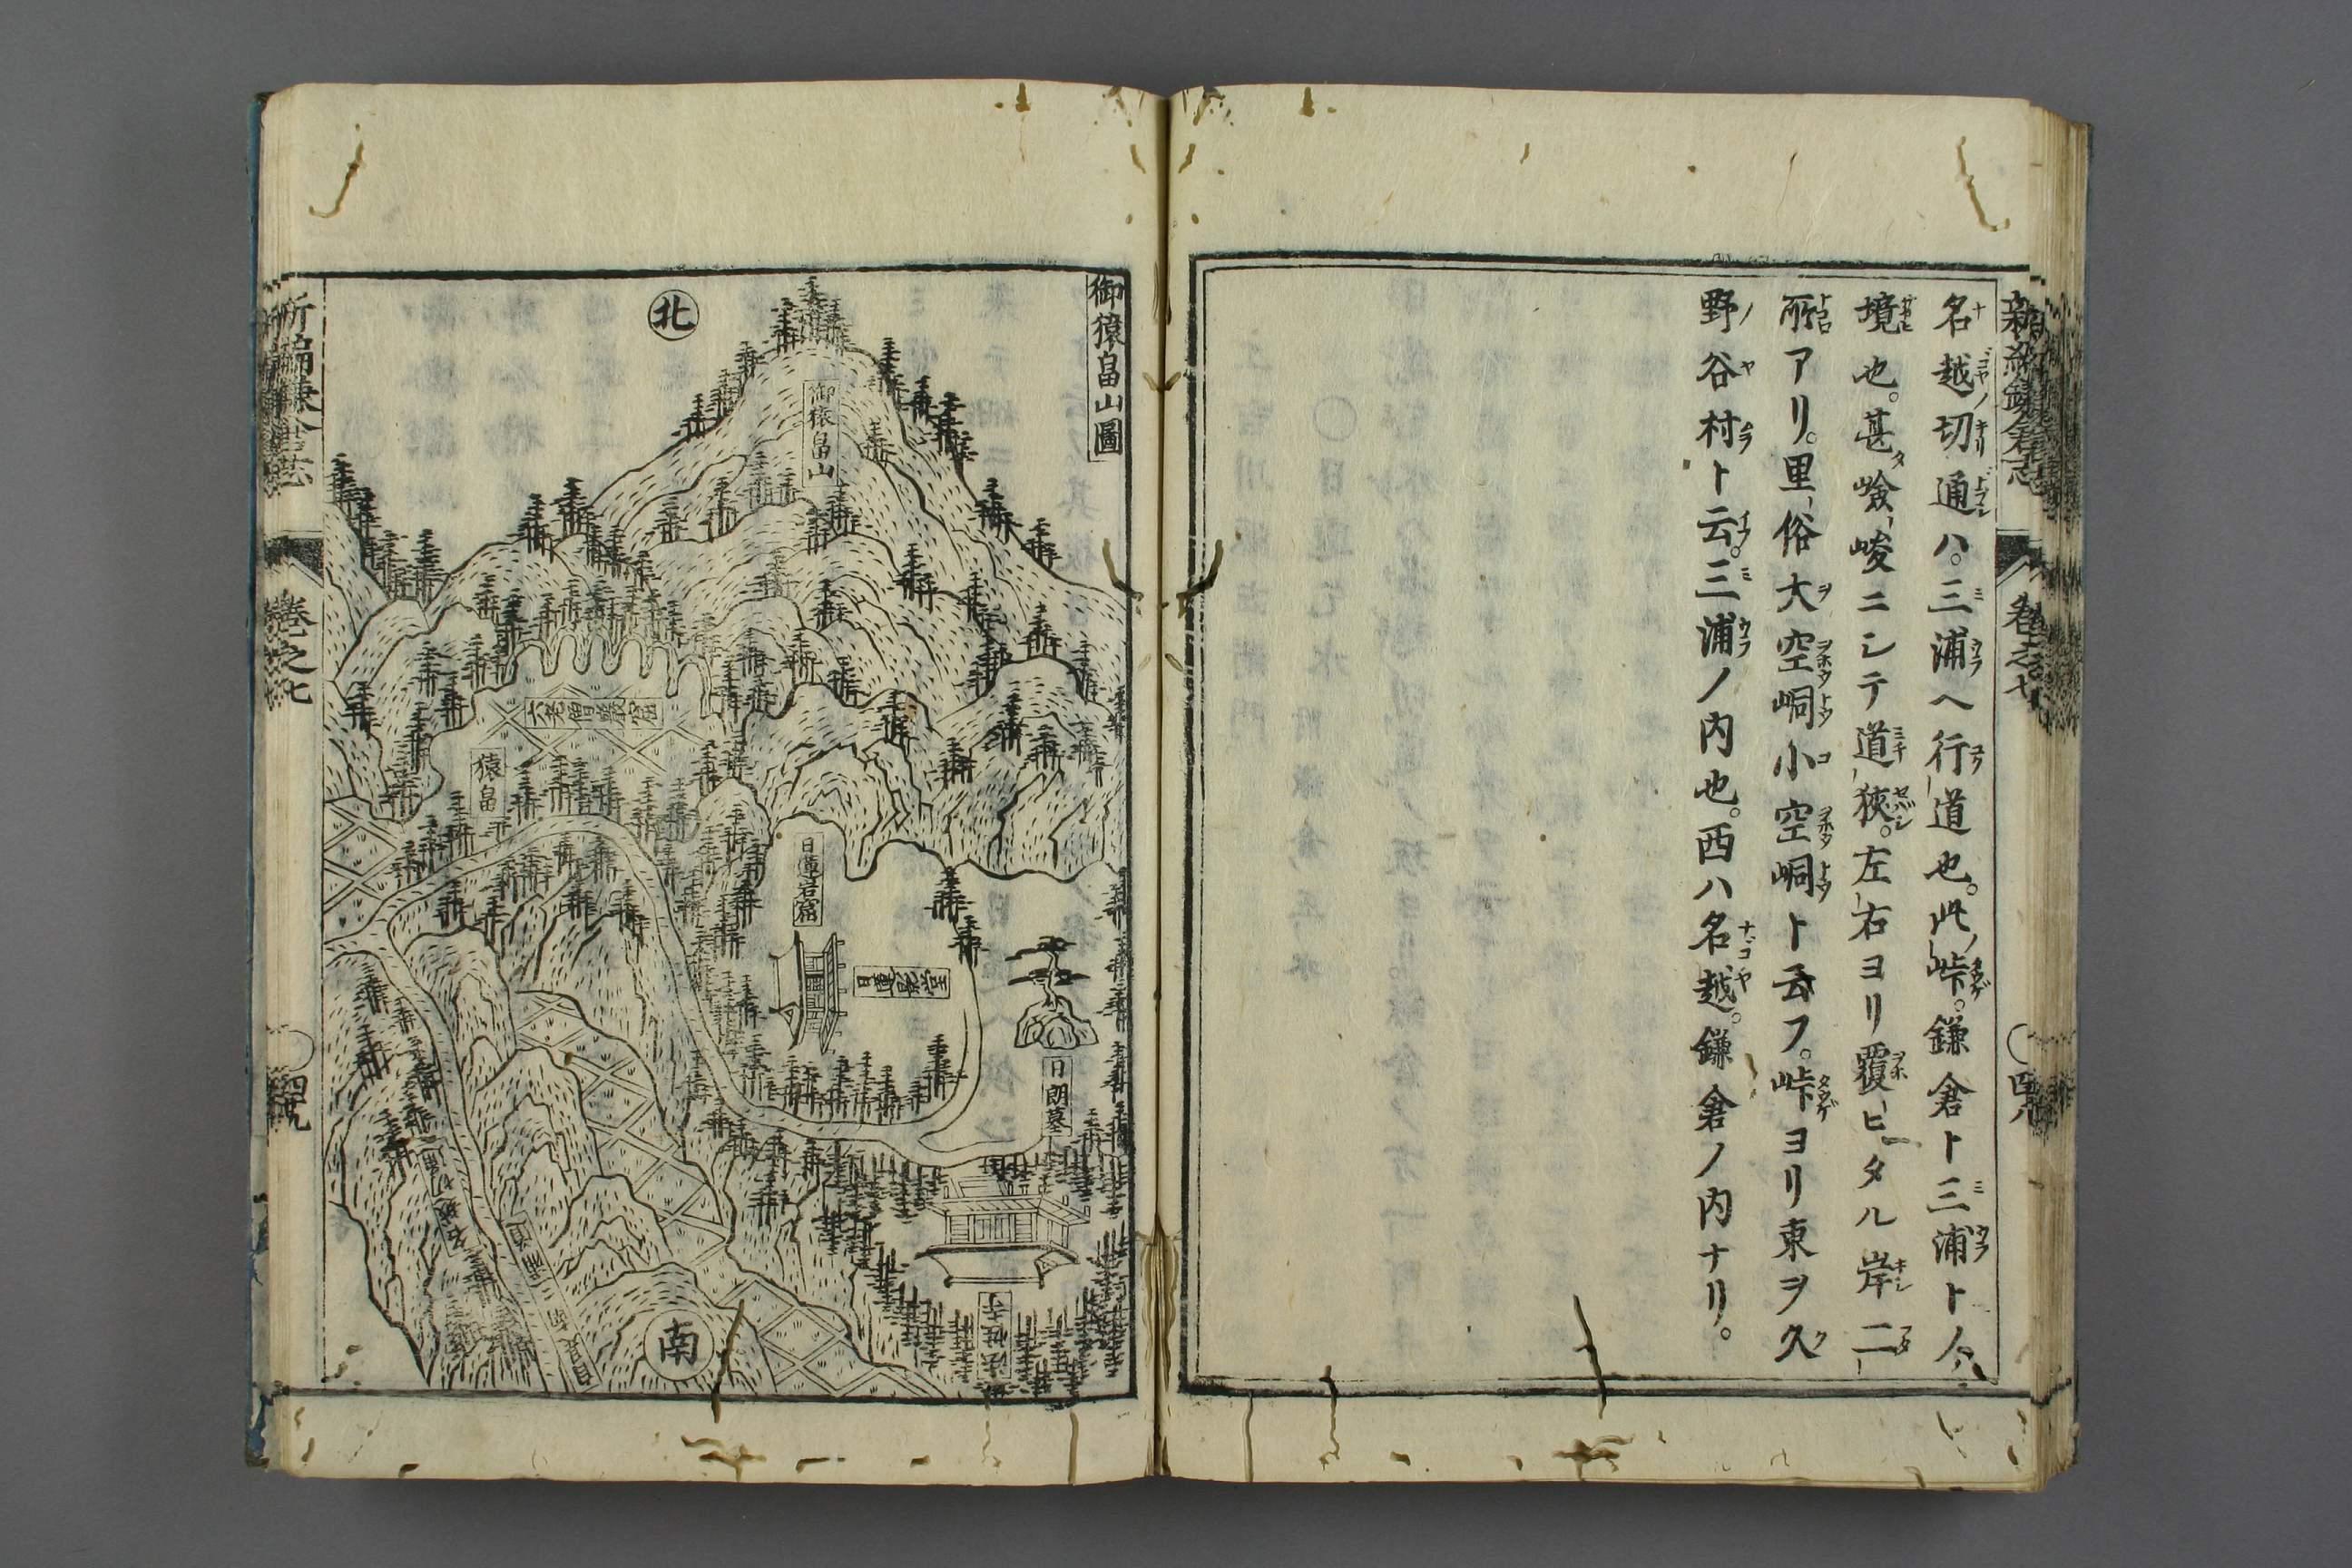 名越切通ハ。三浦ヘ行道也。此峠。鎌倉ト三浦トノ
境也。甚嶮峻ニシテ道狹。左右ヨリ覆ヒタル岸二
所アリ。里俗大空峒小空峒ト云フ。峠ヨリ東ヲ久
野谷村ト云。三浦ノ内也。西ハ名越。鎌倉ノ内ナリ。
新編鎌倉志
卷之七
御猿畠山圖
北
御猿畠山
六老僧巖窟
猿畠
日蓮岩窟
日蓮影堂
日朗墓
南
新編鎌倉志
卷之七